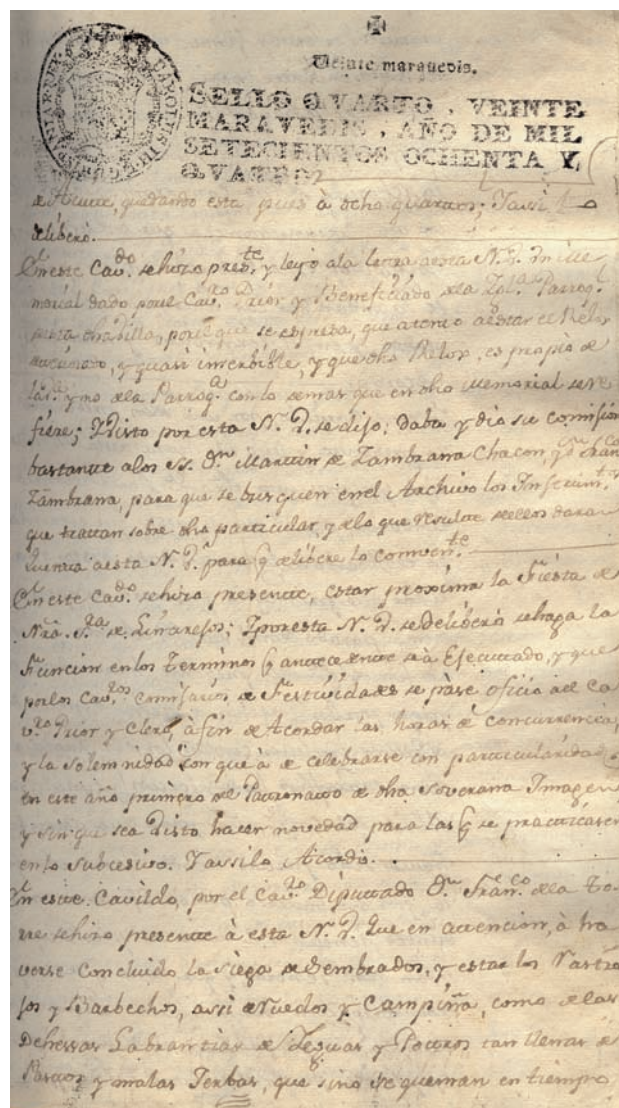 Veinte maravedis.
SELLO QVARTO, VEINTE
MARAVEDIS, AÑO DE MIL
SETECIENTOS OCHENTA Y
QVATRO
de Azeite, quedando esta pues à ocho quartos; Yassi lo
deliberò.
En este Cavdo. se hizo preste. y leyò ala letra aesta N. V. Un me
morial dado por el Cavro. Prior y Beneficiado dela Igla. Parrogl.
desta dha Villa, por el que se espresa, que atento aestar el Relox
y quasi inservible, y que dho Relox, es propio de
y no dela Parroga. con lo demas que en dho memorial se re
fiere; Y Visto por esta N. V. se dijo: daba y dio su comision
bastante alos SS. Dn. Martin de Zambrana Chacon, y Dn. Franco.
Zambrana, para que se busquen en el Archivo los Instrumtos.
que tratan sobre dho particular, y delo que Resulte dellos daran
Quenta aesta N. V. para q delibere lo convente.
En este Cavdo. se hizo presente, estar proxima la Fiesta de
Nra. Sra. de Linarejos; Y por esta N. V. se deliberò se haga la
Funcion en los Terminos q antecedente se à Efecuttado, y que
por los Cavros. Comisarios de Festividades se pase oficio al Ca
vro. Prior y Clero, à fin de Acordar las horas de concurrencia,
y la solemnidad con que à de celebrarse con particularidad
en este año primero del Patronato de dha Soverana Imagen
y sin que sea Visto hacer novedad para las q se practicasen
en lo subcesivo. Yassilo Acordò.
En este Cavildo, por el Cavro. Diputtado Dn. Franco. dela To
rre se hizo presente à esta N. V. Que en attencion, à ha
verse Concluido la Siega de Sembrados, y estar los Rastro
jos y Barbechos, assi de Ruedos y Campiña, como delas
Dehessas Labrantias de Yeguas y Potros tan llenas de
Pastos y malas Yerbas, que sino se queman en tiempo